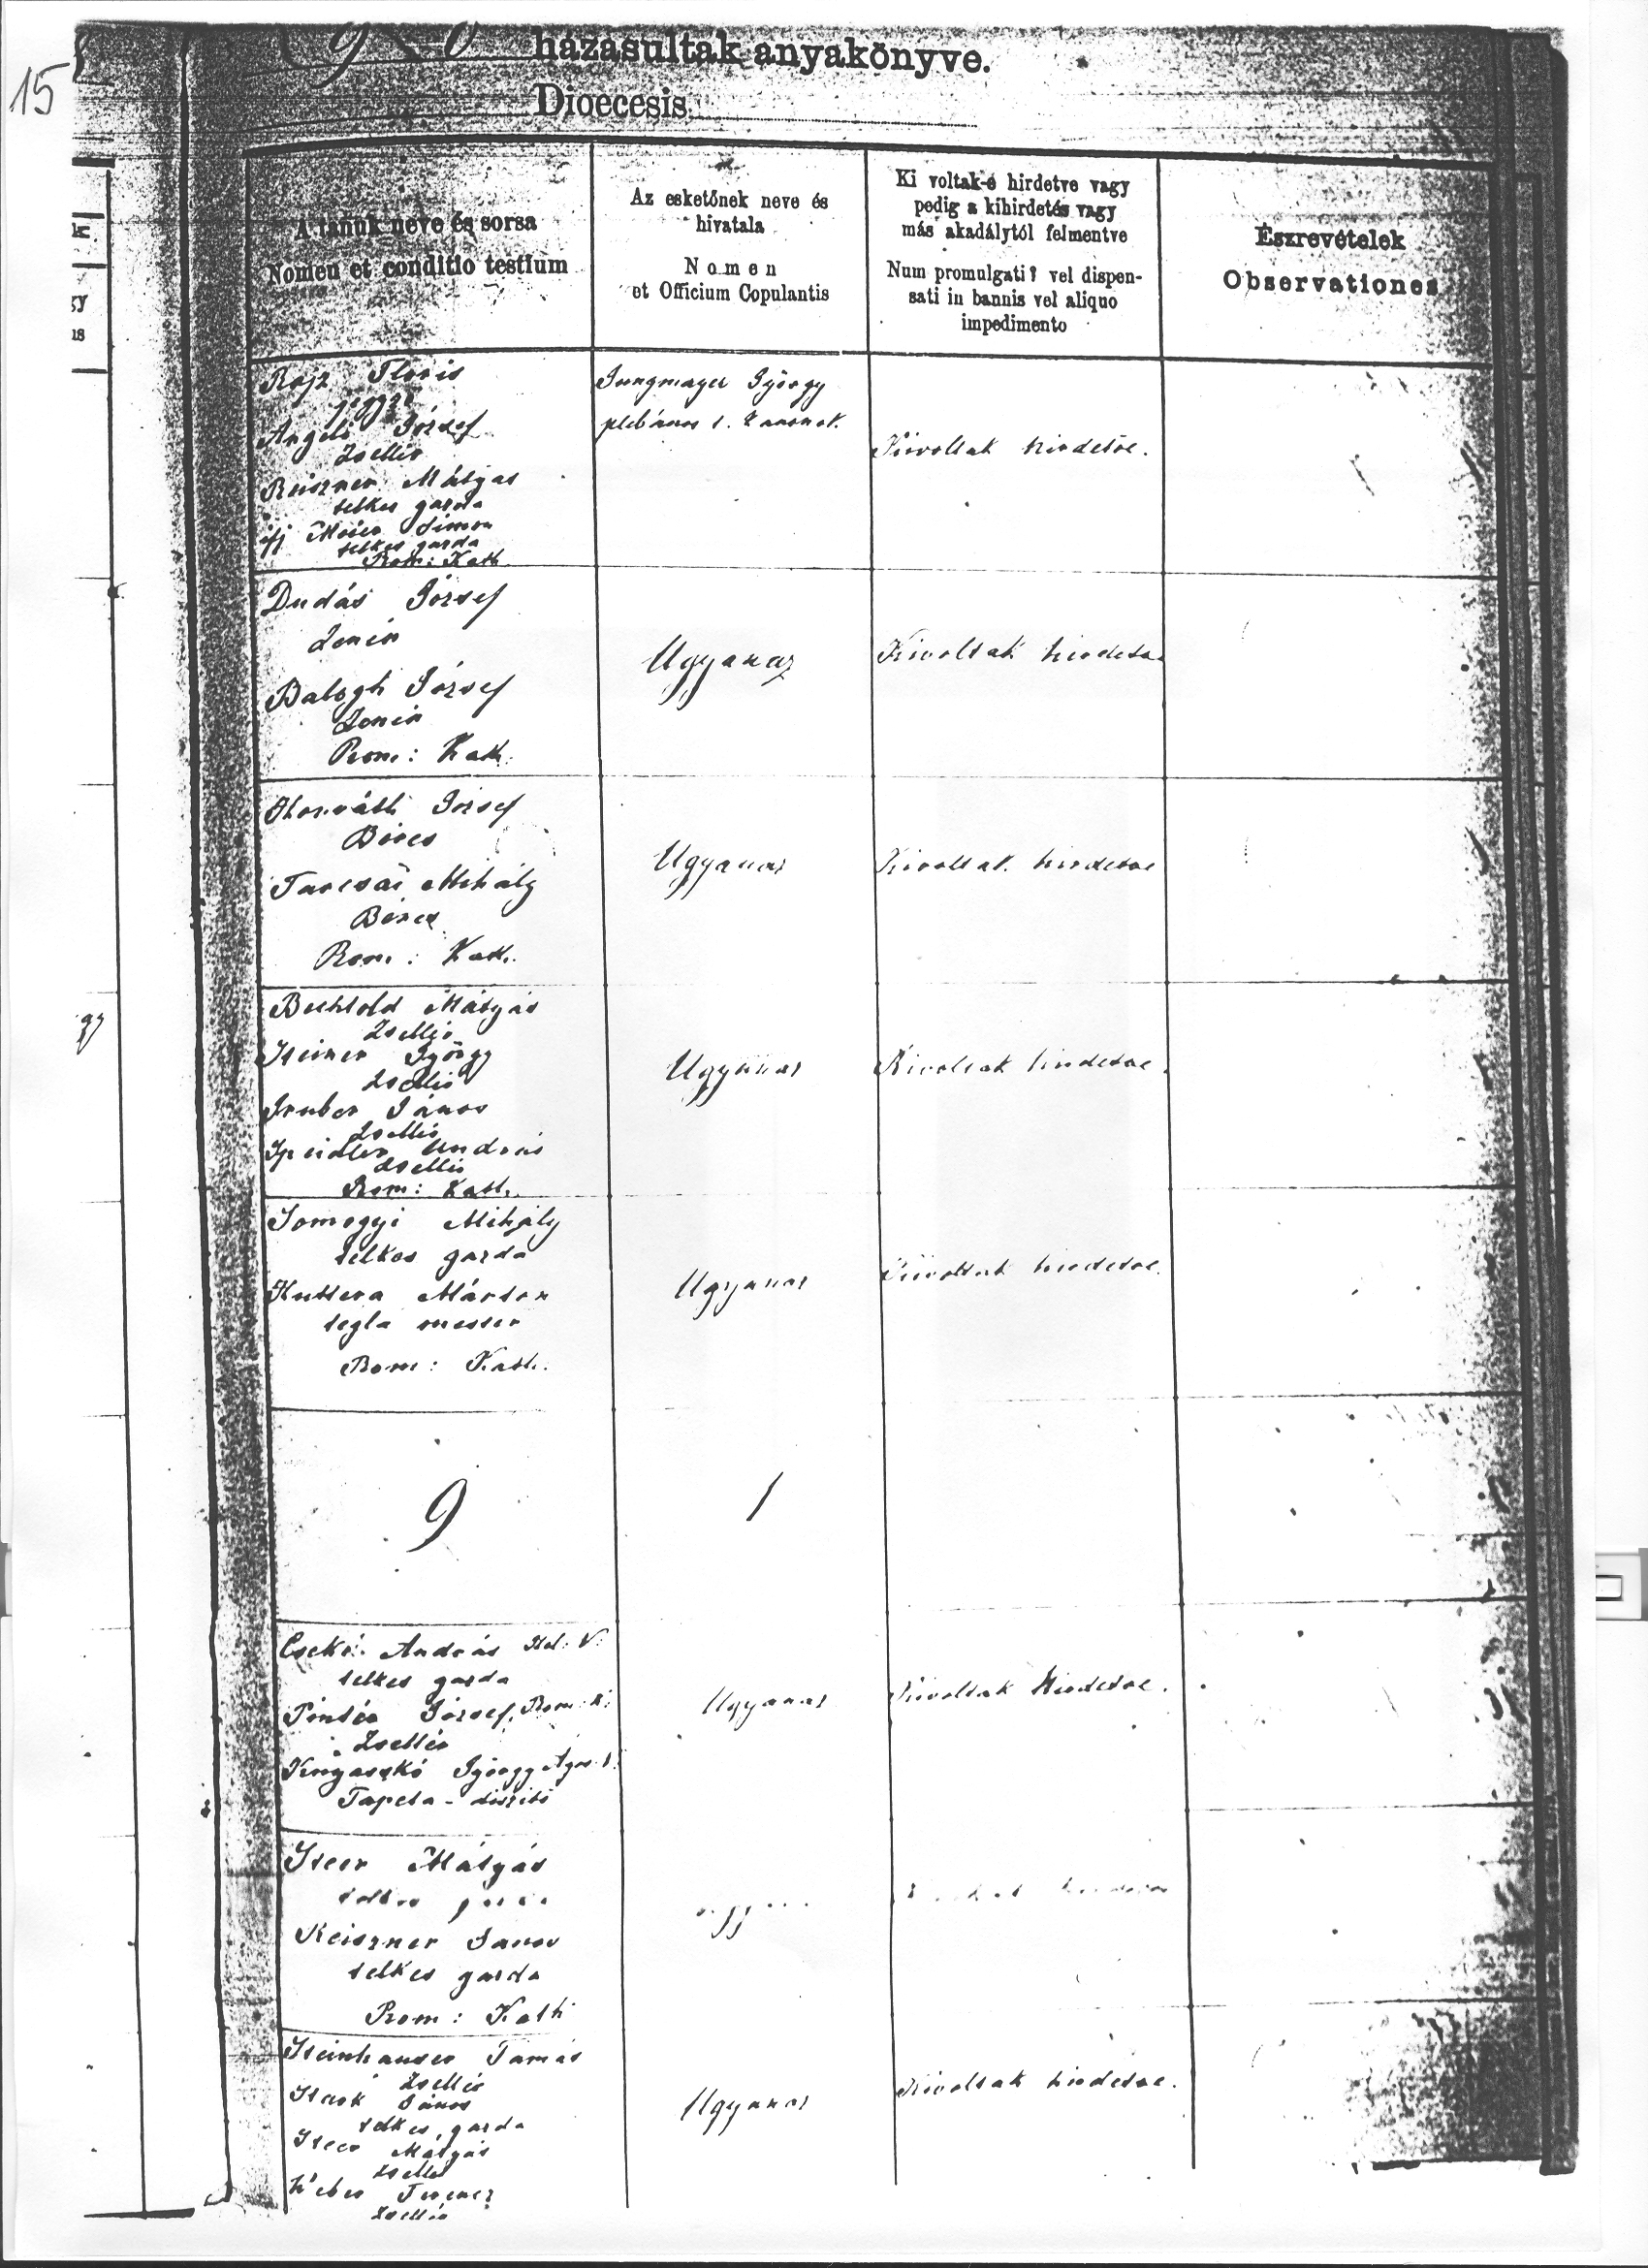 15
házasultak anyakönyve.
Dioecesis
A tanuk neve és sorsa
Nomen et conditio testium
Az esketőnek neve és
hivatala
Nomen
et Officium Copulantis
Ki voltak-e hirdetve vagy
pedig a kihirdetés vagy
más akadálytól felmentve
Num promulgati? vel dispen-
sati in bannis vel aliquo
impedimento
Észrevételek
Observationes
Rajz Floris
jegyző
Angeli József
Zsellér
Reiszner Mátyás
telkes gazda
ifj Simon
telkes gazda
Rom: Kath
Jungmayer György
plébános
Kivoltak hirdetve.
Dudás József
Zenér
Balogh József
Zenér
Rom: Kath.
Ugyanaz
Kivoltak hirdetve
Horváth József
Béres
Tarcsai Mihály
Béres
Rom: Kath.
Ugyanaz
Kivoltak hirdetve
Bechtold Mátyás
Zsellér
Steiner György
Zsellér
Gruber János
Zsellér
Speidler András
Zsellér
Rom: Kath.
Ugyanaz
Kivoltak hirdetve.
Somogyi Mihály
telkes gazda
Kuttera Márton
tégla mester
Rom: Kath.
Ugyanaz
Kivoltak hirdetve.
9
1
Csekő András Hel: V:
telkes gazda
Pintér József, Rom: K:
Zsellér
György
Tapeta-díszítő
Ugyanaz
Kivoltak hirdetve.
Steer Mátyás
telkes gazda
Reiszner János
telkes gazda
Rom: Kath
Steinhauser Tamás
Zsellér
Stark János
telkes gazda
Steer Mátyás
Zsellér
Weber Ferencz
Zsellér
Ugyanaz
Kivoltak hirdetve.